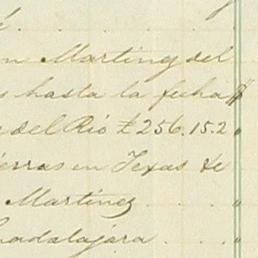 n Marting del
hasta la fecha
del Rio £ 256.15.2 "
erras en Texas &e
Martinez "
uadalajara . . . "